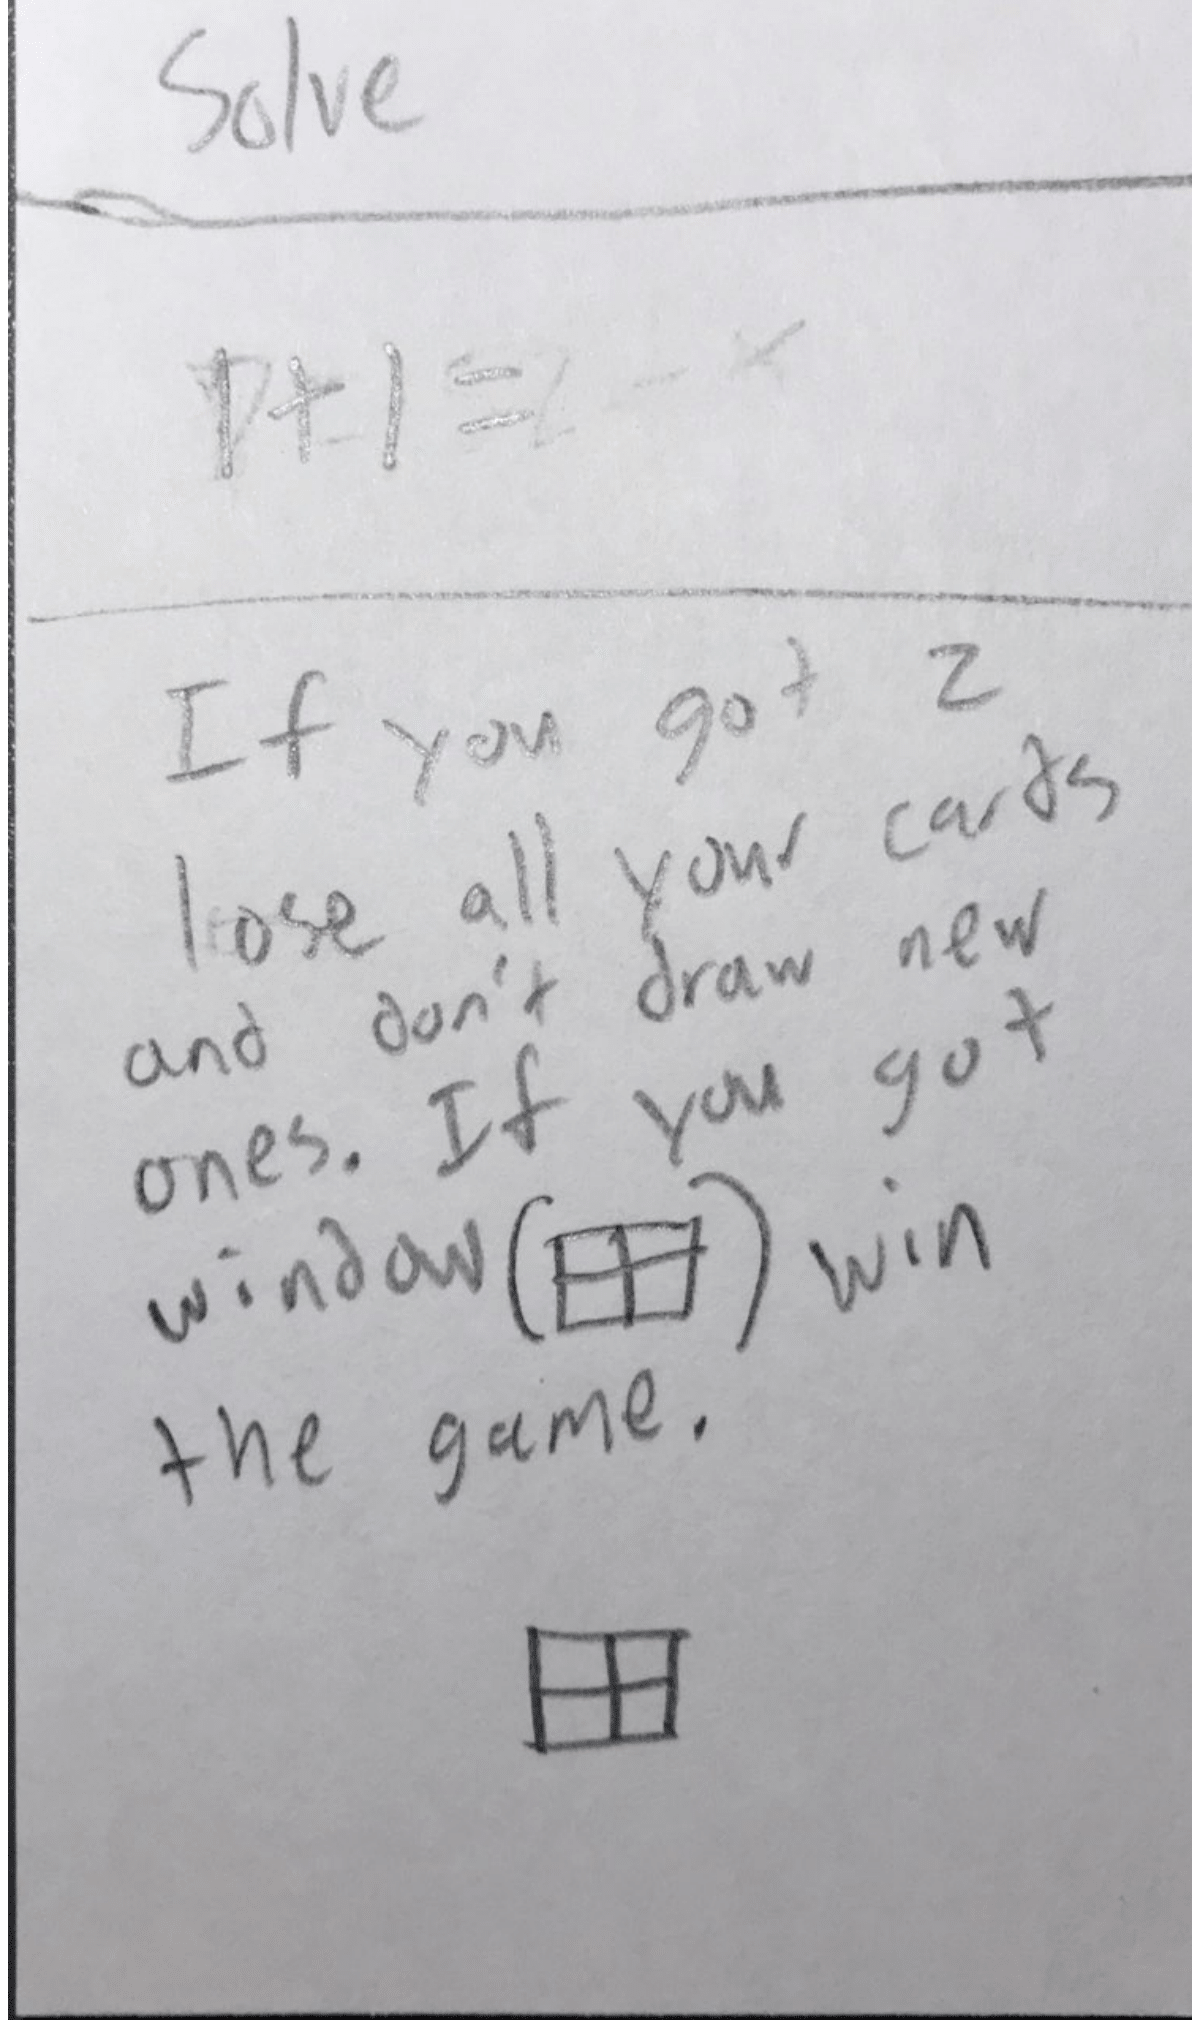 Solve
1+1=
If you got 2
lose all your cards
and don't draw new
ones. If you got
window() win
the game.